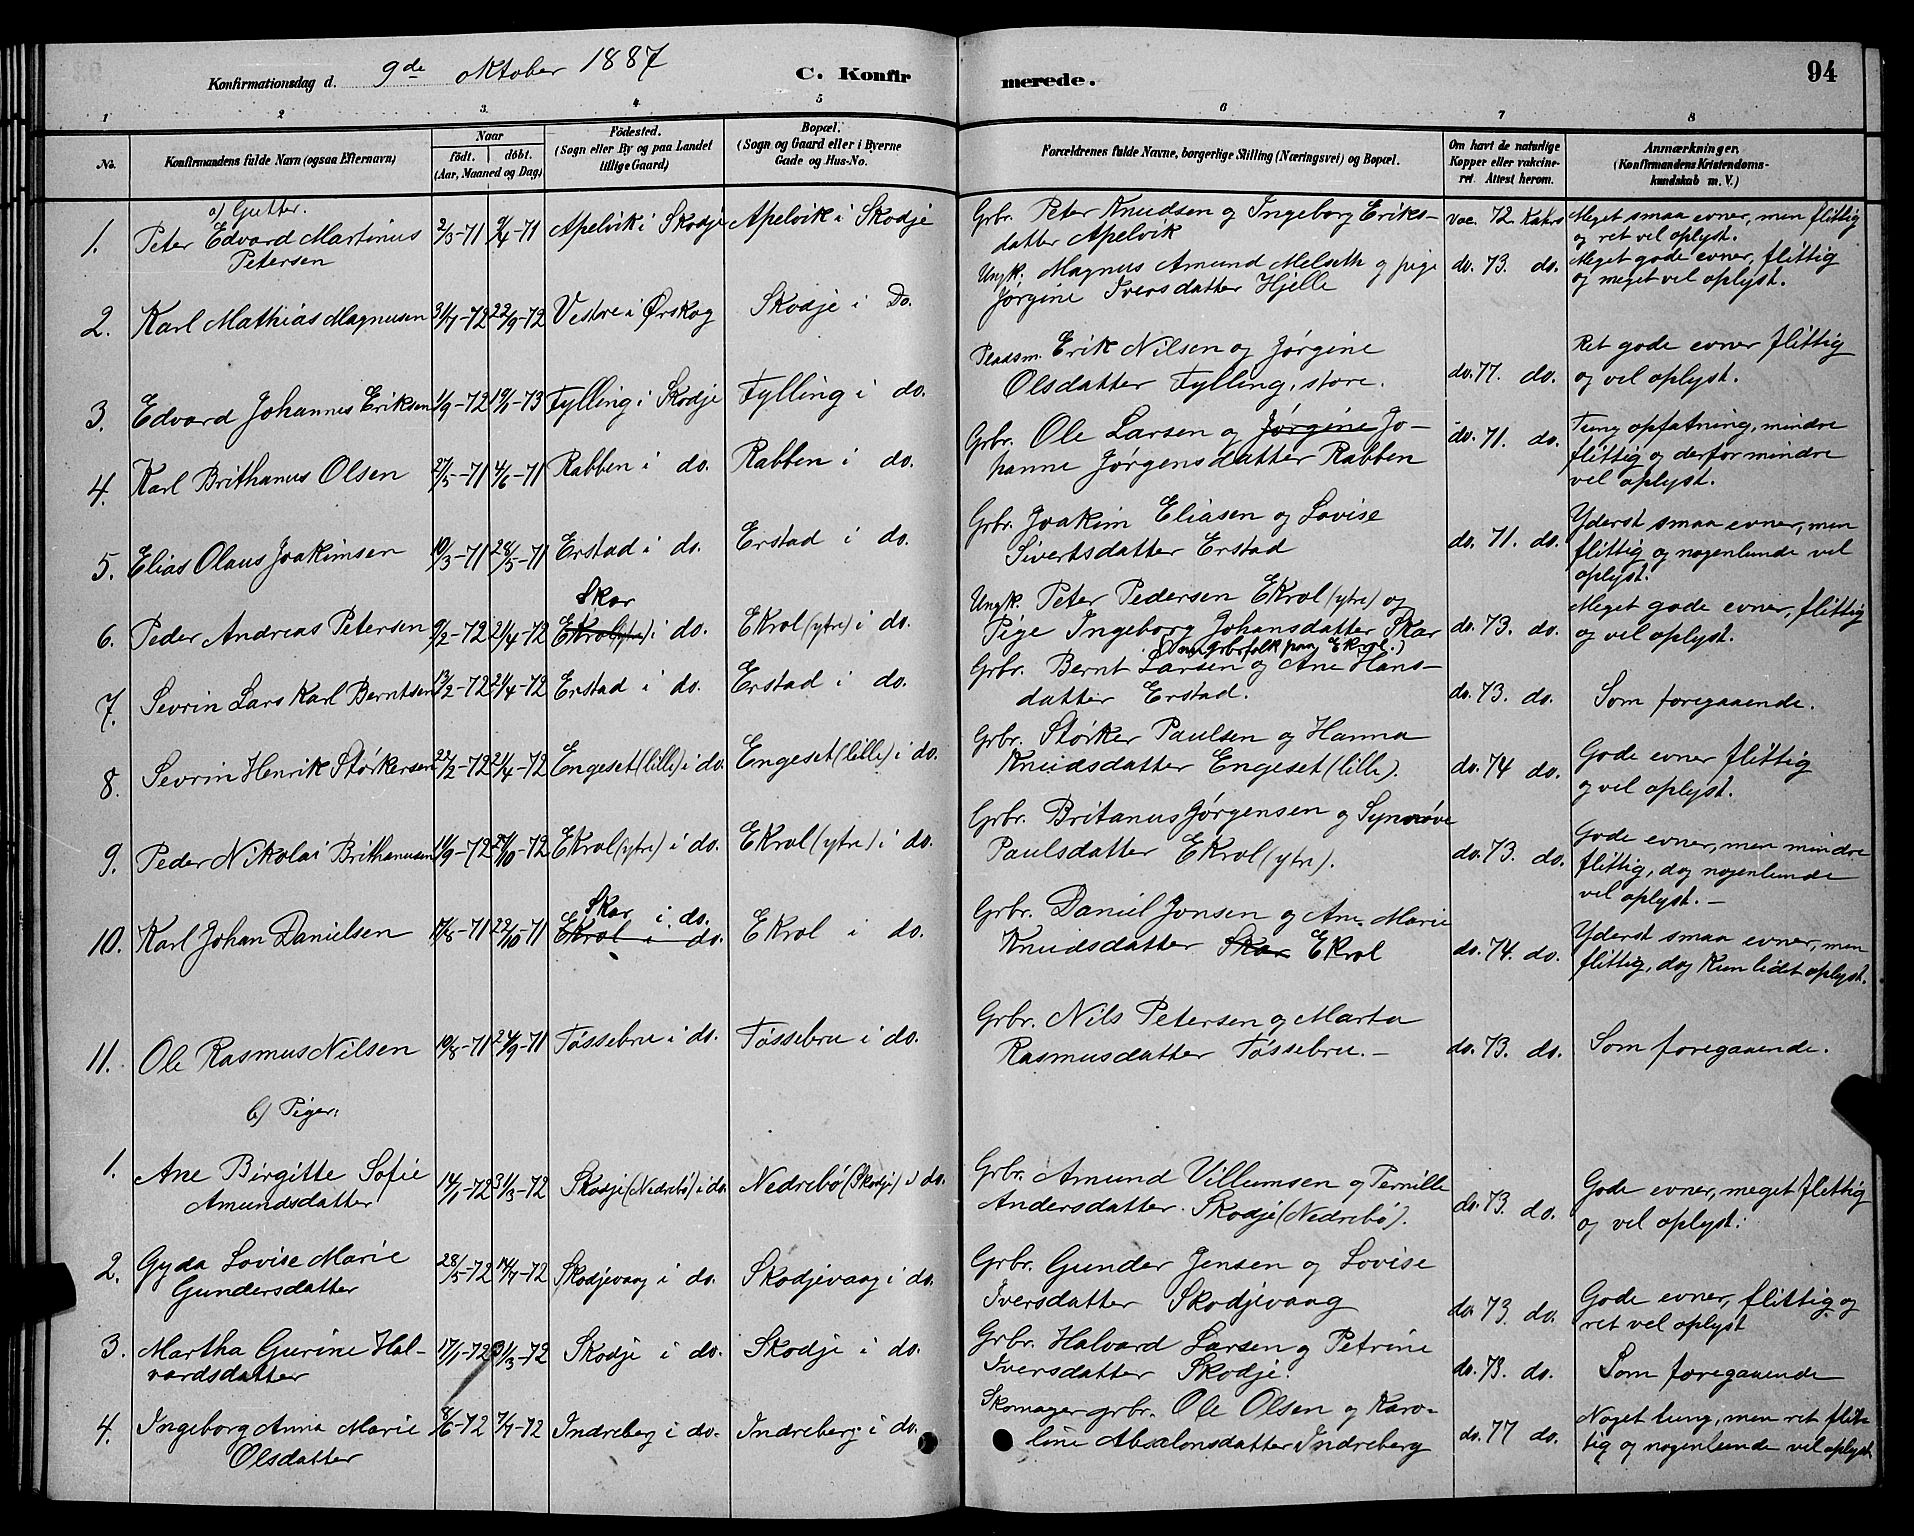 Konfirmationsdag d. 9de oktober 1887 C. Konfirmerede. 94
1 2 3. 4. 5 6 7 8
No. Konfirmandens fulde Navn (ogsaa Efternavn) Naar født. døbt. (Aar, Maaned og Dag) Fødested. (Sogn eller By og paa Landet tillige Gaard) Bopæl. (Sogn og Gaard eller i Byerne Gade og Hus-No. Forældrenes fulde Navne, borgerlige Stilling (Næringsvei) og Bopæl. Om havt de naturlige Kopper eller vakcineret. Attest herom. Anmærkninger, (Konfirmandens Kristendomskundskab m. V.)
a) Gutter.
1. Peter Edvard Martinus Petersen 2/3-71 9/4-71 Apelvik i Skodje Apelvik i Skodje Grbr. Peter Knudsen og Ingeborg Eriksdatter Apelvik vac. 72 Kahrs Meget smaa evner, men flittig og ret vel oplyst.
2. Karl Mathias Magnusen 31/7-72 22/9-72 Vestre i Ørskog Skodje i Do. Ungk. Magnus Amund Melseth og pige Jørgine Iversdatter Hjelle do. 73. do. Meget gode evner, flittig og meget vel oplyst.
3. Edvard Johannes Eriksen 1/9-72 19/1-73 Fylling i Skodje Fylling i do. Pladsm. Erik Nilsen og Jørgine Olsdatter Fylling, store. do. 77. do. Ret gode evner flittig og vel oplyst.
4. Karl Brithanus Olsen 27/5-71 4/6-71 Rabben i do. Rabben i do. Grbr. Ole Larsen og Jørgine Johanne Jørgensdatter Rabben do. 71. do. Tung opfatning, mindre flittig og derfor mindre vel oplyst.
5. Elias Olaus Joakimsen 19/3-71 28/5-71 Erstad i do. Erstad i do. Grbr. Joakim Eliasen og Lovise Sivertsdatter Erstad do. 71. do. Yderst smaa evner, men flittig og nogenlunde vel oplyst.
6. Peder Andreas Petersen 9/2-72 21/4-72 Skar Ekrol (ytre) i do. Ekrol (ytre) i do. Ungk. Peter Pedersen Ekrol (ytre) og Pige Ingeborg Johansdatter Skar (nu grbrfolk paa Ekrol.) do. 73. do. Meget gode evner, flittig og vel oplyst.
7. Sevrin Lars Karl Berntsen 13/2-72 21/4-72 Erstad i do. Erstad i do. Grbr. Bernt Larsen og Ane Hansdatter Erstad. do. 73. do. Som foregaaende.
8. Sevrin Henrik Størkersen 22/2-72 21/4-72 Engeset (lille) i do. Engeset (lille) i do. Grbr. Størker Paulsen og Hanna Knudsdatter Engeset (lille). do. 74 do. Gode evner flittig og vel oplyst.
9. Peder Nikolai Brithanusen 11/9-72 27/10-72 Ekrol (ytre) i do. Ekrol (ytre) i do. Grbr. Britanus Jørgensen og Synnøve Paulsdatter Ekrol (ytre). do. 73. do. Gode evner, men mindre flittig, dog nogenlunde vel oplyst. —
10. Karl Johan Danielsen 17/8-71 22/10-71 Skar i do. Ekrol i do. Ekrol i do. Grbr. Daniel Jonsen og Ane Marie Knudsdatter Skar Ekrol do. 74. do. Yderst smaa evner, men flittig, dog kun lidet oplyst.
11. Ole Rasmus Nilsen 19/8-71 24/9-71 Føssebru i do. Føssebru i do. Grbr. Nils Petersen og Marta Rasmusdatter Føssebru. — do. 73. do. Som foregaaende.
b) Piger:
1. Ane Birgitte Sofie Amundsdatter 14/1-72 31/3-72 Skodje (Nedrebø) i do. Nedrebø (Skodje) i do. Grbr. Amund Villumsen og Pernille Andersdatter Skodje (Nedrebø). do. 73. do. Gode evner, meget flittig og vel oplyst.
2. Gyda Lovise Marie Gundersdatter 28/5-72 14/7-72 Skodjevaag i do. Skodjevaag i do. Grbr. Gunder Jensen og Lovise Iversdatter Skodjevaag do 73. do. Gode evner, flittig og ret vel oplyst
3. Martha Gurine Halvardsdatter 17/1-72 31/3-72 Skodje i do. Skodje i do. Grbr. Halvard Larsen og Petrine Iversdatter Skodje. do. 73. do. Som foregaaende
4. Ingeborg Anna Marie Olsdatter 8/6-72 7/7-72 Indreberg i do. Indreberg i do. Skomager grbr. Ole Olsen og Karoline Absalonsdatter Indreberg do. 77 do. Noget tung, men ret flittig og nogenlunde vel oplyst